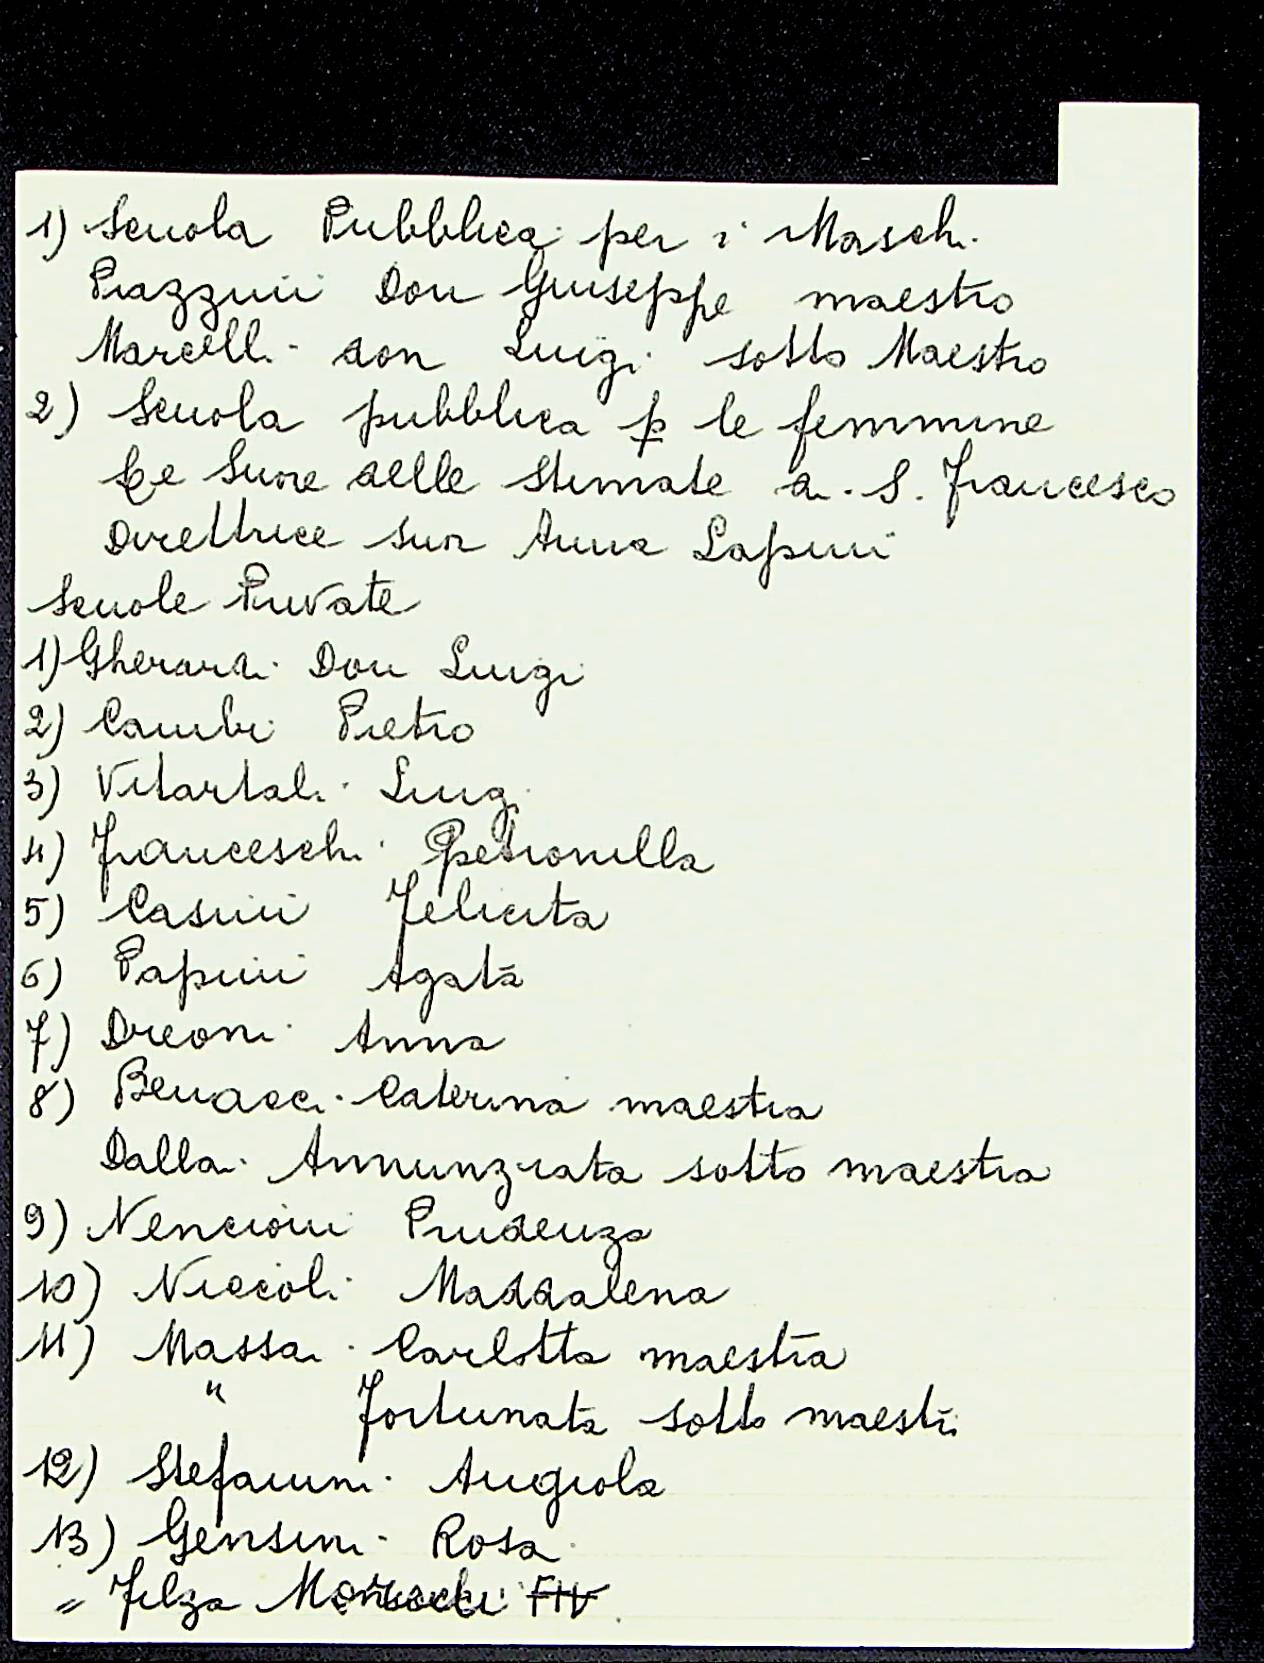 1) Scuola Pubblica per i Maschi
Piazzini Don Giuseppe maestro
Marcelli don Luigi sotto Maestro
2) Scuola pubblica p le femmine
Le Suore delle Stimate a S. Francesco
Direttrice Suor Anna Lapini
Scuole Private
1) Gherardi Don Luigi
2) Cambi Pietro
3) Vitartali Luigi
4) Franceschi Petronilla
5) Casini Felicita
6) Papini Agata
7) Dreoni Anna
8) Benucci Caterina maestra
Dallai Annunziata sotto maestra
9) Nencioni Prudenza
10) Niccoli Maddalena
11) Massai Carlotta maestra
" Fortunata sotto maestra
12) Stefanini Angiola
13) Gensini Rosa
" Filza